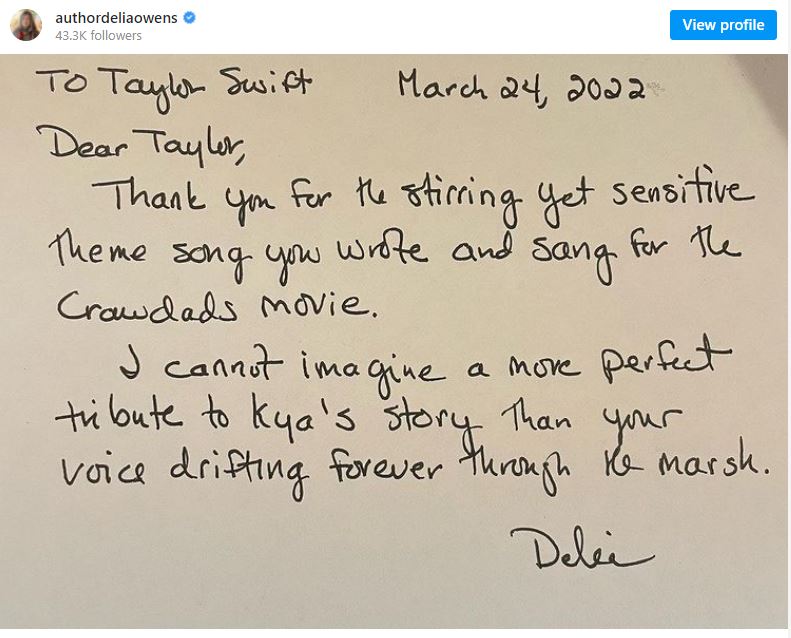 authordeliaowens
43.3K followers
View profile
To Taylor Swift March 24, 2022
Dear Taylor,
Thank you for the stirring yet sensitive
theme song you wrote and sang for the
Crawdads movie.
I cannot imagine a more perfect
tribute to Kya's story than your
voice drifting forever through the marsh.
Delia